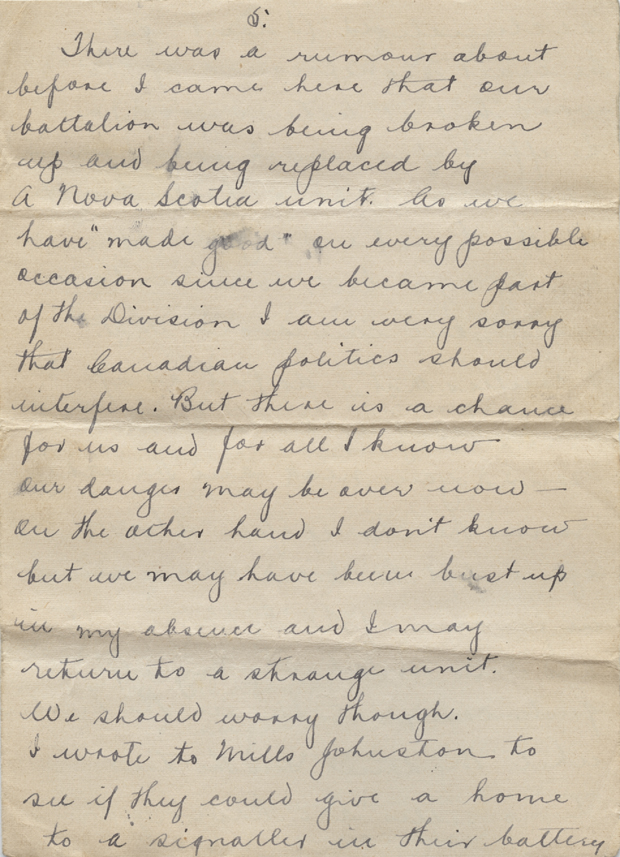 5.
There was a rumour about
before I came here that our
battalion was being broken
up and being replaced by
a Nova Scotia unit. As we
have "made good" on every possible
occasion since we became part
of the Division I am very sorry
that Canadian politics should
interfere. But there is a chance
for us and for all I know
our danger may be over now —
on the other hand I don't know
but we may have been bust up
in my absence and I may
return to a strange unit.
We should worry though.
I wrote to Mills Johnston to
see if they could give a home
to a signaller in their battery